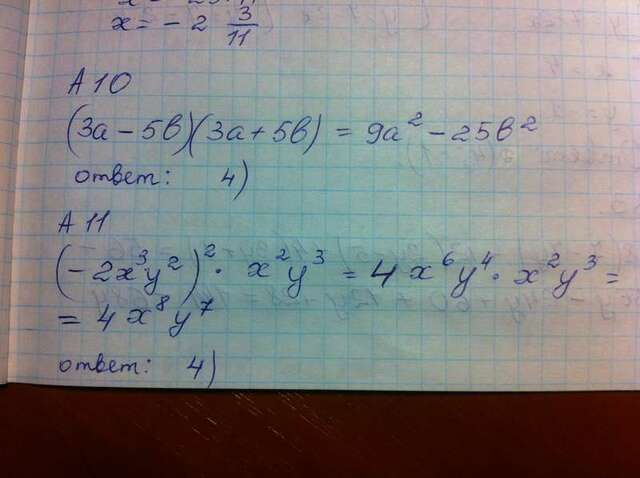 x = - 2 3/11
А10
(3a - 5b)(3a + 5b) = 9a² - 25b²
ответ: 4)
А11
(- 2x³y²)² · x²y³ = 4x⁶y⁴ · x²y³ =
= 4x⁸y⁷
ответ: 4)